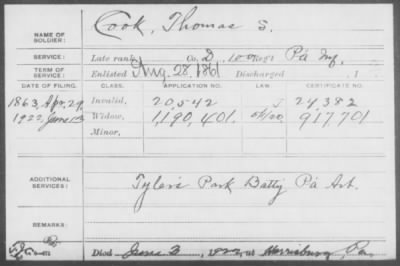 NAME OF SOLDIER: Cook, Thomas S.
SERVICE: Late rank, Co. D, 100 Reg't Pa Inf.
TERM OF SERVICE: Enlisted Aug. 28, 1861 Discharged , 1
DATE OF FILING. CLASS. APPLICATION NO. LAW. CERTIFICATE NO.
1863, Apr. 29, Invalid, 20,542 24,382
1922, June 13 Widow, 1,190,401. 917,701
Minor,
ADDITIONAL SERVICES: Tyler's Park Batty Pa Art.
REMARKS:
Died June 3, 1922, at Harrisburg, Pa.